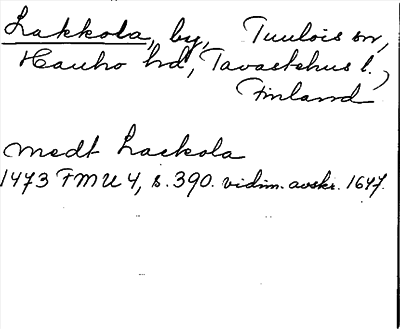 Lakkola, by, Tuulois sn,
Hauho hd, Tavastehus l.,
Finland
medt Lackola
1473 FMU 4, s. 390. vidim. avskr. 1647.